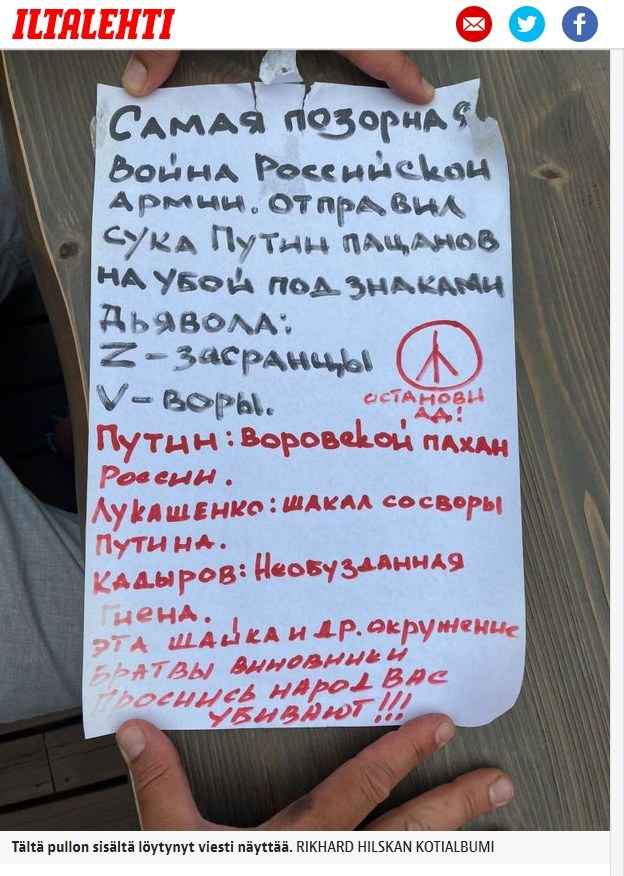 ILTALEHTI
f
Самая позорная
война Российской
армии. Отправил
сука Путин пацанов
на убой под знаками
Дьявола:
Z – засранцы
V – воры.
останови
ад!
Путин: воровской пахан
России.
Лукашенко: шакал со своры
Путина.
Кадыров: Необузданная
Гиена.
эта шайка и др. окружение
братвы виновники
Проснись народ вас
убивают!!!
Tältä pullon sisältä löytynyt viesti näyttää. RIKHARD HILSKAN KOTIALBUMI